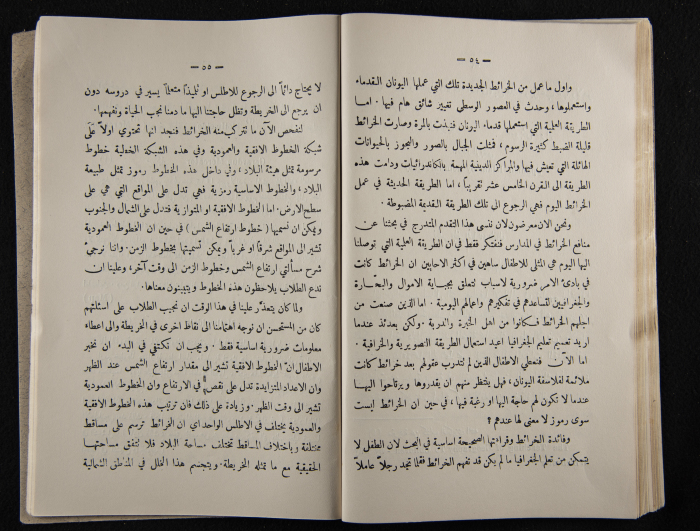 — ٥٤ —
واول ما عمل من الخرائط الجديدة تلك التي عملها اليونان القدماء
واستعملوها، وحدث في العصور الوسطى تغيير شائق هام فيها. اما
الطريقة العلمية التي استعملها قدماء اليونان فنبذت بالمرة وصارت الخرائط
قليلة الضبط كثيرة الرسوم، فمثلت الجبال بالصور والبحور بالحيوانات
الهائلة التي تعيش فيها والمراكز الدينية المهمة بالكاتدرائيات ودامت هذه
الطريقة الى القرن الخامس عشر تقريباً، اما الطريقة الحديثة في عمل
الخرائط اليوم فهي الرجوع الى تلك الطريقة القديمة المضبوطة.
ونحن الان معرضون لان ننسى هذا التقدم المتدرج في بحثنا عن
منافع الخرائط في المدارس فنفتكر فقط في ان الطريقة العلمية التي توصلنا
اليها اليوم هي المثلى للاطفال ساهين في اكثر الاحايين ان الخرائط كانت
في بادئ الامر ضرورية لاسباب تتعلق بجباية الاموال والبحّارة
والجغرافيين لتساعدهم في تفكيرهم واعمالهم اليومية. اما الذين صنعت من
اجلهم الخرائط فكانوا من اهل الخبرة والدربة. ولكن بعدئذ عندما
اريد تعميم تعليم الجغرافيا اعيد استعمال الطريقة التصويرية والخرافية.
اما الآن فنعطي الاطفال الذين لم تتدرب عقولهم بعد خرائط كانت
ملائمة لفلاسفة اليونان، فهل ينتظر منهم ان يقدروها ويرتاحوا اليها
عندما لا تكون لهم حاجة اليها او رغبة فيها، في حين ان الخرائط ليست
سوى رموز لا معنى لها عندهم؟
وفائدة الخرائط وقراءتها الصحيحة اساسية في البحث لان الطفل لا
يتمكن من تعلم الجغرافيا ما لم يكن قد تفهم الخرائط فقلما تجد رجلاً عاملاً
— ٥٥ —
لا يحتاج دائماً الى الرجوع للاطلس او تلميذاً متعلماً يسير في دروسه دون
ان يرجع الى الخريطة وتظل حاجتنا اليها ما دمنا نجرب الحياة ونتفهمها.
لنفحص الآن ما تتركب منه الخرائط فنجد انها تحتوي اولاً على
شبكة الخطوط الافقية والعمودية وفي هذه الشبكة الخطية خطوط
مرسومة تمثل هيئة البلاد، وفي داخل هذه الخطوط رموز تمثل طبيعة
البلاد، والخطوط الاساسية رمزية فهي تدل على المواقع التي هي على
سطح الارض. اما الخطوط الافقية او المتوازية فتدل على الشمال والجنوب
ويمكن ان نسميها (خطوط ارتفاع الشمس) في حين ان الخطوط العمودية
تشير الى المواقع شرقاً او غرباً ويمكن تسميتها بخطوط الزمن. واننا نرجئ
شرح مسألتي ارتفاع الشمس وخطوط الزمن الى وقت آخر، وعلينا ان
ندع الطلاب يلاحظون هذه الخطوط ويتبينون معناها.
ولما كان يتعذّر علينا في هذا الوقت ان نجيب الطلاب على اسئلتهم
كان من المستحسن ان نوجه اهتمامنا الى نقاط اخرى في الخريطة والى اعطاء
معلومات ضرورية اساسية فقط. ويجب ان نكتفي في البدء ان نخبر
الاطفال انّ الخطوط الافقية تشير الى مقدار ارتفاع الشمس عند الظهر
وان الاعداد المتزايدة تدل على نقصٍ في الارتفاع وان الخطوط العمودية
تشير الى وقت الظهر. وزيادة على ذلك فان ترتيب هذه الخطوط الافقية
والعمودية يختلف في الاطلس الواحد اي ان الخرائط ترسم على مساقط
مختلفة وباختلاف المساقط تختلف مساحة البلاد فلا تتفق مساحتها
الحقيقية مع ما تمثله الخريطة. ويتجسم هذا الخلل في المناطق الشمالية